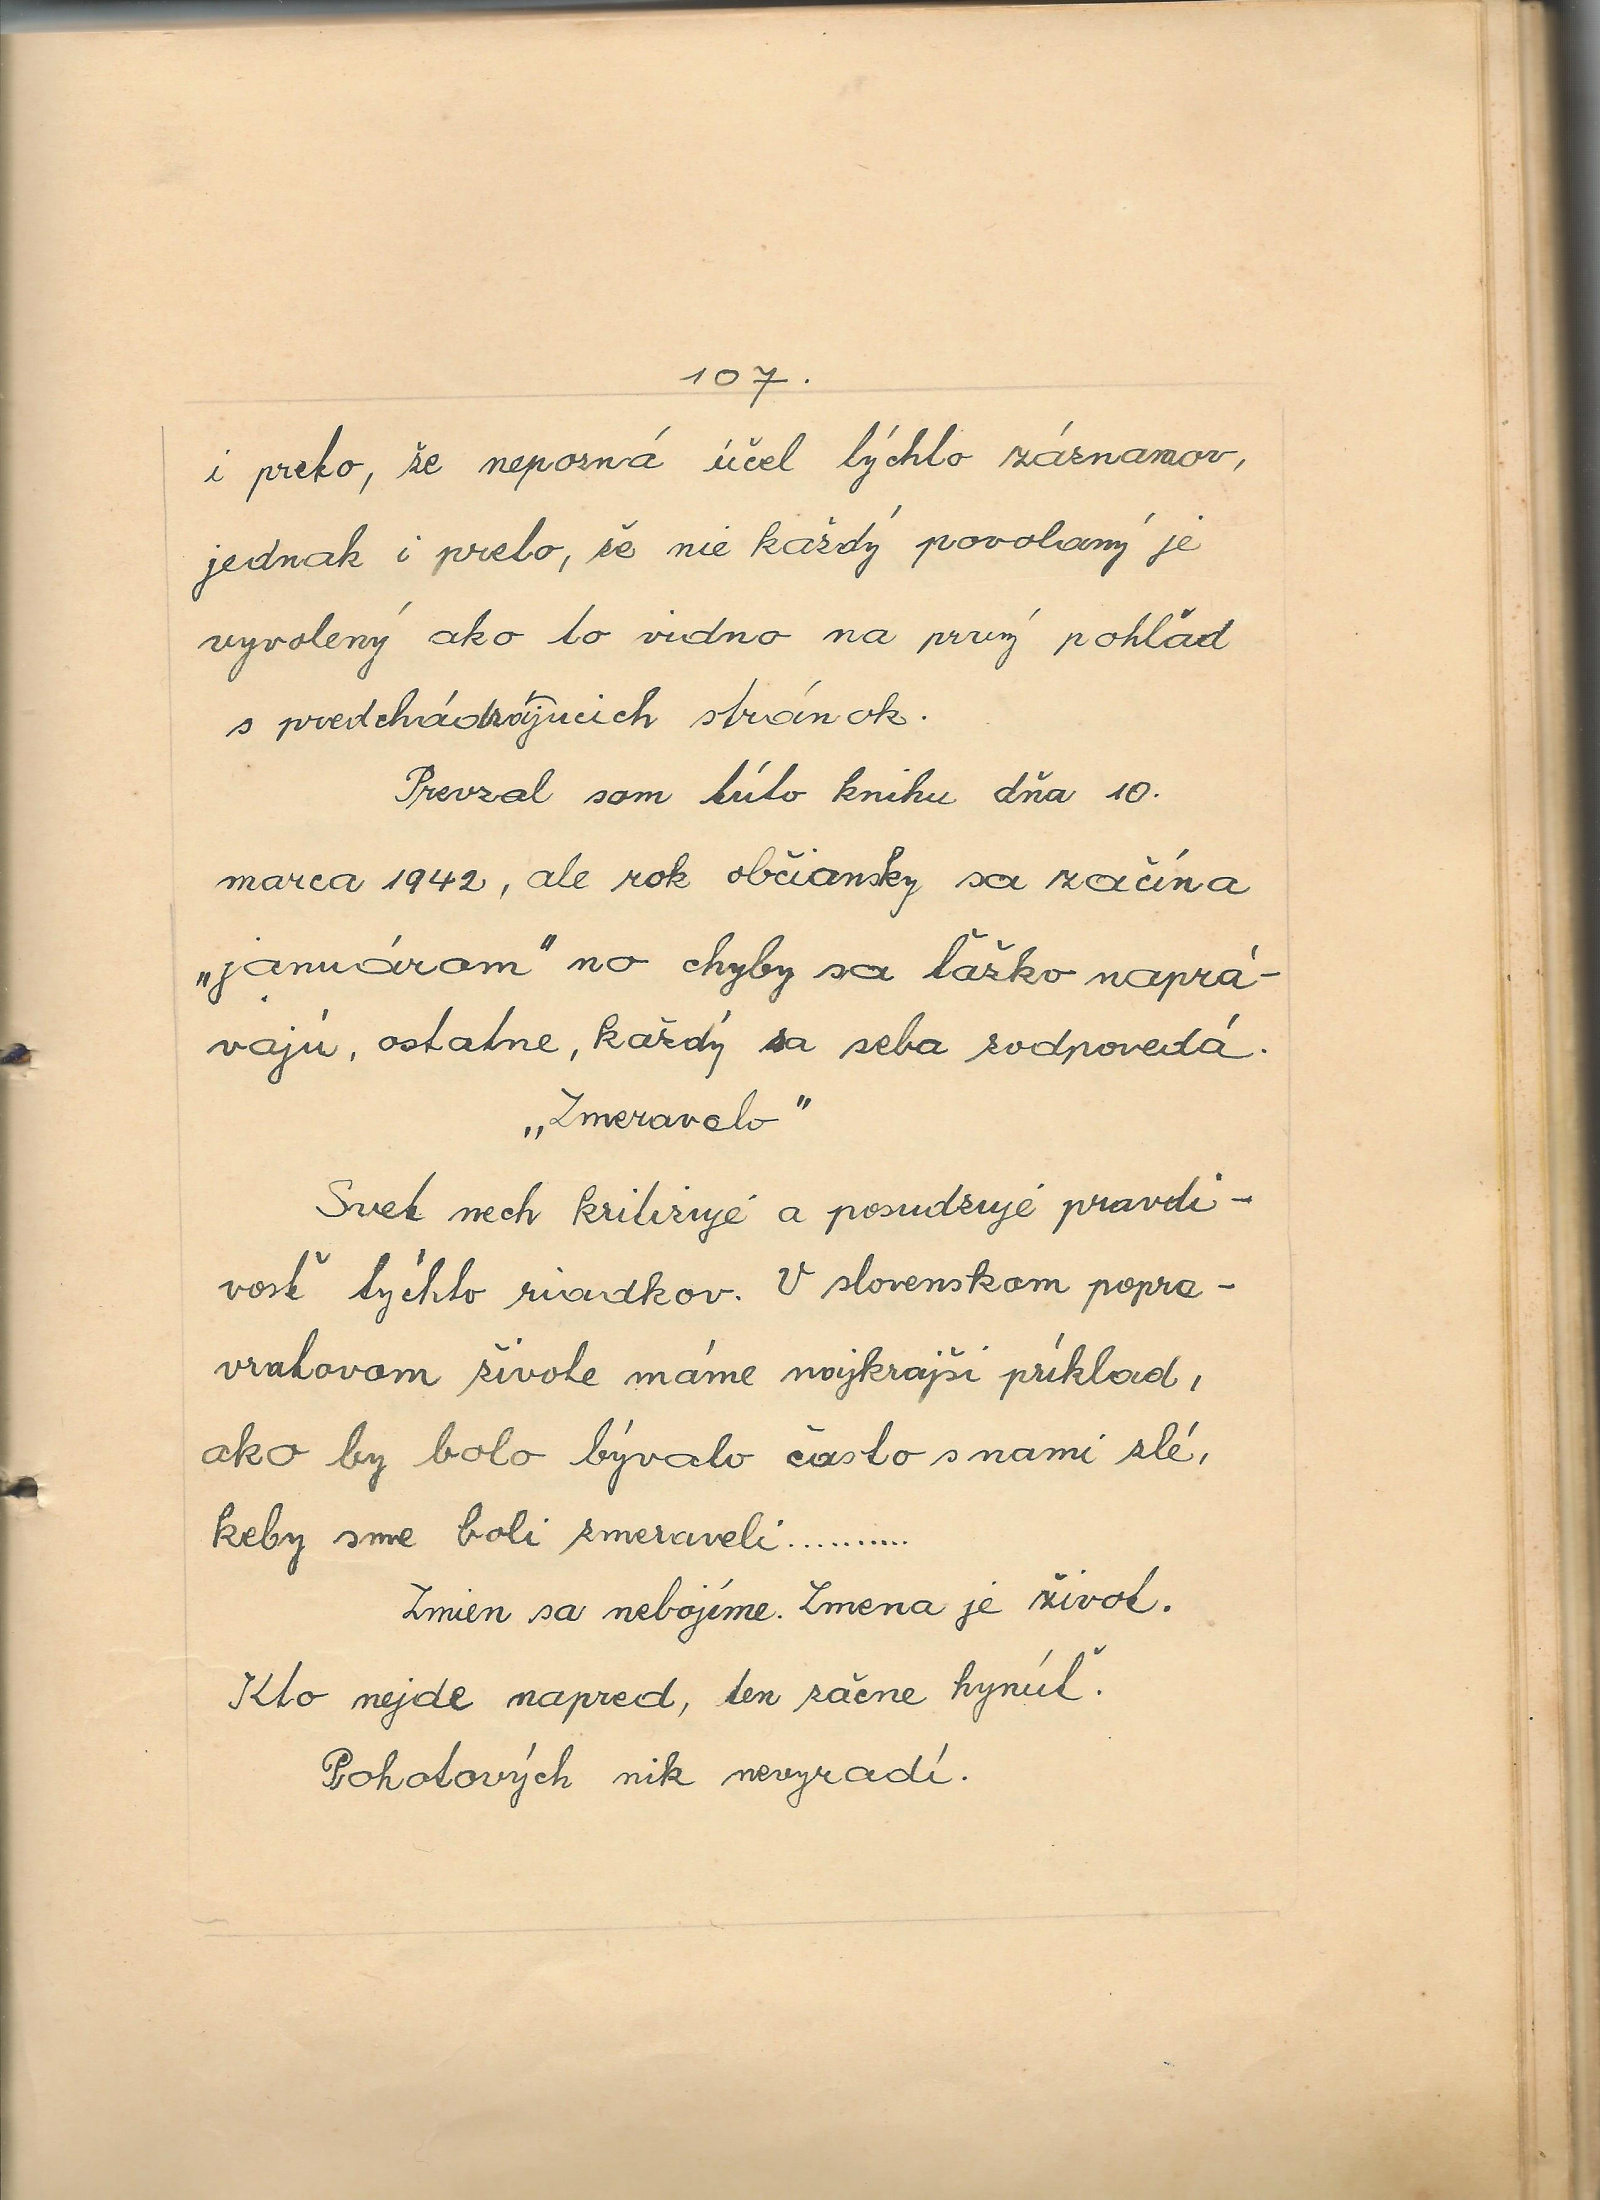 107.
i preto, že nepozná účel týchto záznamov,
jednak i preto, že nie každý povolaný je
vyvolený ako to vidno na prvý pohľad
s predchádzajúcich stránok.
Prevzal som túto knihu dňa 10.
marca 1942, ale rok občiansky sa začína
„januárom" no chyby sa ťažko naprá-
vajú, ostatne, každý za seba zodpovedá.
„Zmeravelo"
Svet nech kritizuje a posudzuje pravdi-
vosť týchto riadkov. V slovenskom popre-
vratovom živote máme najkrajší príklad,
ako by bolo bývalo často s nami zlé,
keby sme boli zmeraveli..........
Zmien sa nebojíme. Zmena je život.
Kto nejde napred, ten začne hynúť.
Pohotových nik nevyradí.